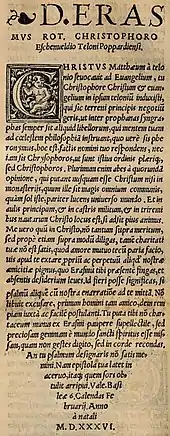 D. ERAS
MVS ROT. CHRISTOPHORO
Eschenueldio Teloni Poppardiensi.
CHRISTVS Matthæum à telo
nio seuocauit ad Euangelium, tu
Christophore Christum & euan
gelium in ipsum telonium induxisti,
qui sic terreni principis negotia
geris, ut inter prophanas syngra
phas semper sit aliquid libellorum, qui mentem tuam
ad cœlestem philosophiam instruant, quo uere sis phe
ronymos, hoc est, factis nomini tuo respondens, nec
tam sis Christophoros, ut sunt istius ordinis plærique,
sed Christophoros, Plurimum enim abes à quorundã
opinione, qui putant nusquam esse Christum nisi in
monasterijs, quum ille sit magis omnium communis,
quàm sol iste, pariter lucens uniuerso mundo. Et in
aulis principum, & in castris militum, & in triremi
bus nautarum Christi locus est, si adsit pius animus.
Me uero quũ in Christo, nõ tantum supra meritum,
sed prope etiam supra modũ diligas, tamē charitati
tuæ nõ est satis, quòd amore mutuo tecũ paria facio,
tutis apud te extare propriũ ac perpetuũ aliquē nostræ
amicitiæ pignus, quo Erasmũ tibi præsentē fingas, et
absentis desideriũ leues. Id fieri posse significas, si
psalmũ aliquē cũ nostra enarratiōe ad te mittã. Nõ
libuit excusare, primum homini tam amico, deinde rem
piam iuxta ac facilē postulanti. Tu puta tibi nõ char
taceum munus ex Erasmi paupere supellectile, sed
preciosam gemmam è mundo sancti spiritus esse mis
sam, quam non gestes digito, sed in corde recondas.
An tu psalmum designaris nõ satis me
mini. Nam epistola tua latet in
aceruo, itaque quem sors ob
tulit arripui. Vale. Basi
leæ 6, Calendas Fe
bruarij, Anno
à natali
M. D. XXXVI.